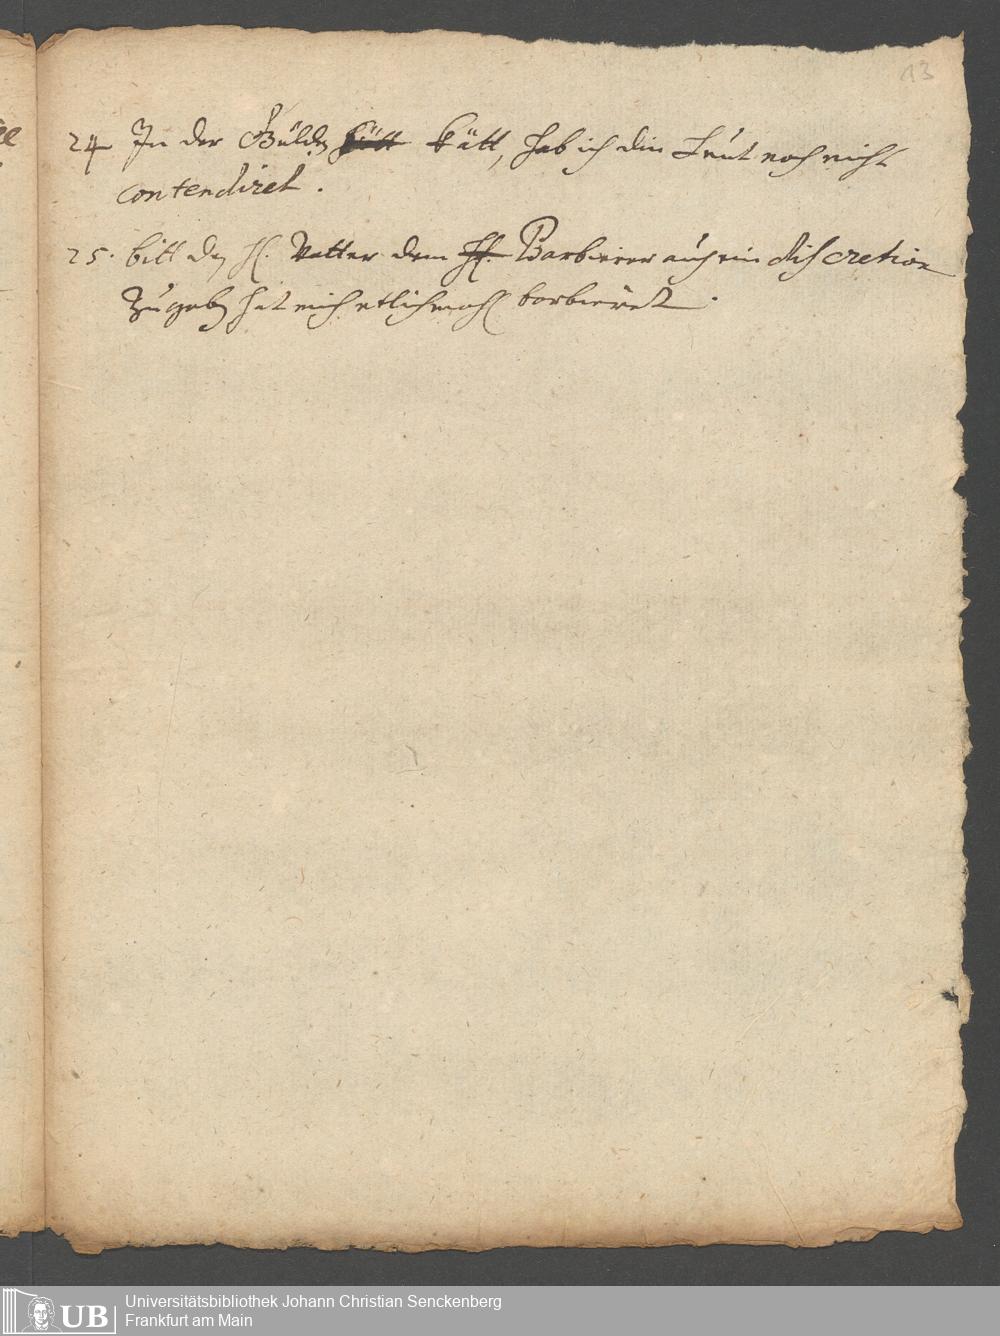 13
24 In der Gülden kätt, hab ich die Leut noch nicht
contendiret.
25. bitt den H. Vatter dem H. Barbierer auch ein discretion
zu geben hat mich etlichmahl barbieret.
UB Universitätsbibliothek Johann Christian Senckenberg
Frankfurt am Main